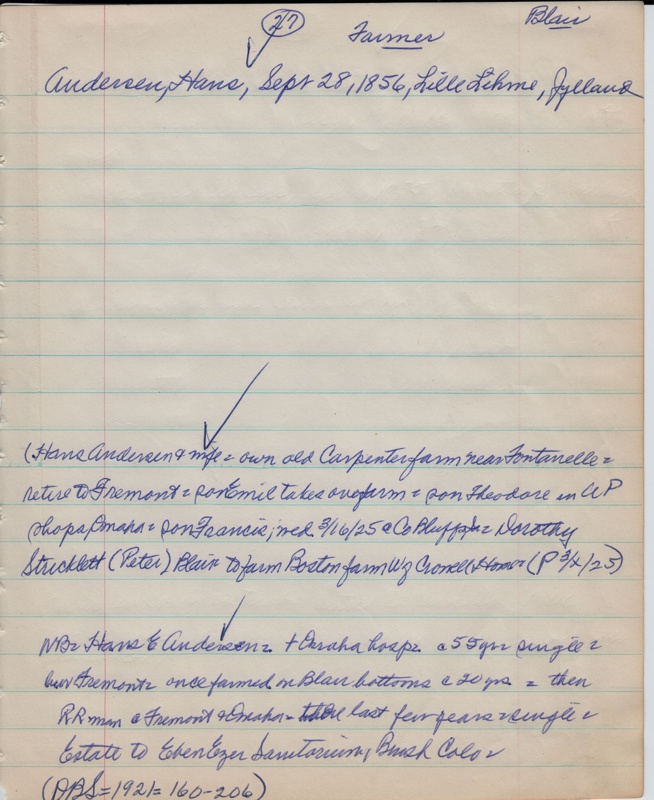 27 Farmer Blair
Andersen, Hans, Sept 28, 1856, Lille Lihme, Jylland
(Hans Andersen & wife = own old Carpenter farm near Fontanelle =
retire to Fremont = son Emil takes over farm = son Theodore in UP
shops, Omaha = son Francis, wed. 3/16/25 @ Co Bluffs, Ia = Dorothy
Stricklett (Peter) Blair to farm Boston farm (P 3/ /25)
NB = Hans E Andersen = + Omaha hosp = @ 55 yrs = single =
bur Fremont = once farmed on Blair bottoms c 20 yrs = then
RR man @ Fremont & Omaha = last few years = single =
Estate to EbenEzer Sanitorium, Brush Colo =
(DBS = 1921 = 160-206)